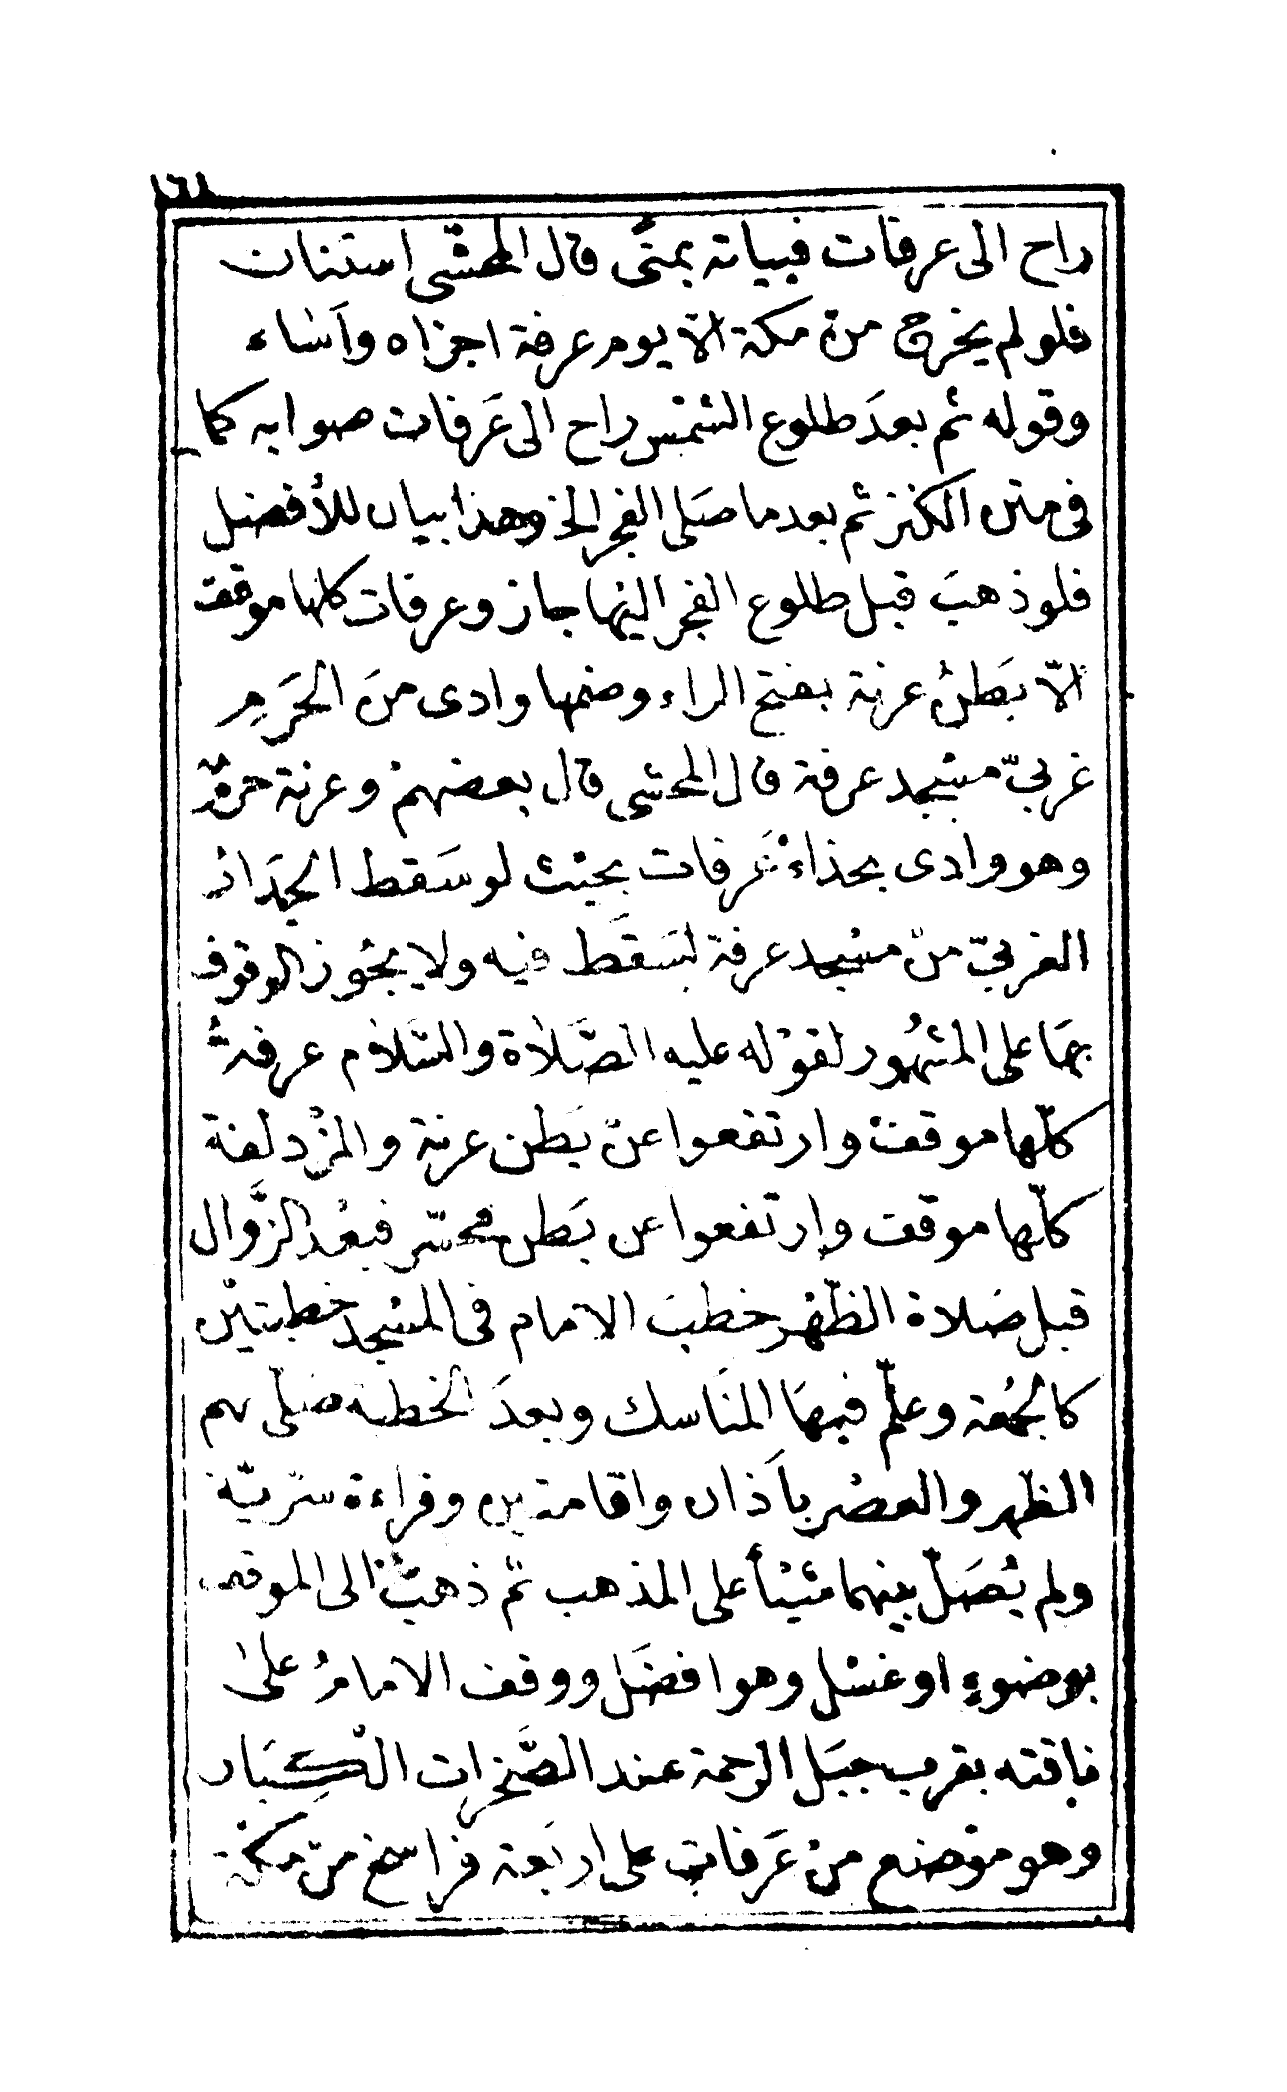 ١٦١
راح الى عرفات فبياته بمنًى قال المحشّى استنان
فلولم يخرج من مكة الاّ يوم عرفة اجزاه وآساء
وقوله ثم بعدَ طلوع الشمْس راح الى عَرفات صوابه كما
فى متن الكنز ثم بعد ما صَلى الفجر الخ وهذا بيان للأفضل
فلو ذهبَ قبل طلوع الفجر اليها جاز وعرفات كلها موقف
الاّ بَطنُ عرنة بفتح الراء وضمها وادى منَ الحَرَمِ
غربىّ مسْجد عرفة قال المحشى قال بعضهمْ وعرنة
وهو وادى بحذاءْ عَرفات بحيْث لو سَقط الجدَار
الغربىّ منْ مسْجد عرفة لسَقَط فيه ولا يجُوز الوقوف
بهَا على المشهُور لقوْله عليه الصَّلاة والسَّلام عرفةُ
كلّها موقفْ وارتفعوا عنْ بَطن عرنة والمزْدلفة
كلّها موقف وارتفعوا عن بَطن محسّر فبعْد الزَّوال
قبل صَلاة الظّهْر خطبَ الامام فى المسْجد خطبتيْن
كالجمُعة وعلّم فيهَا المنَاسك وبعدَ الخطبة صَلّى بهم
الظّهر والعصْر بآذان واقامتين وقراءة سرّيّة
ولم يُصَلّ بينهما شيْئاً على المذهب ثمّ ذهبَ الى الموقف
بوضوءٍ او غسْل وهو افضَل ووقف الامامُ على
ناقته بقرب جبَل الرحمة عند الصَّخرات الْكِبَار
وهو موْضع منْ عَرفات على اربَعة فراسخ منْ مكّة